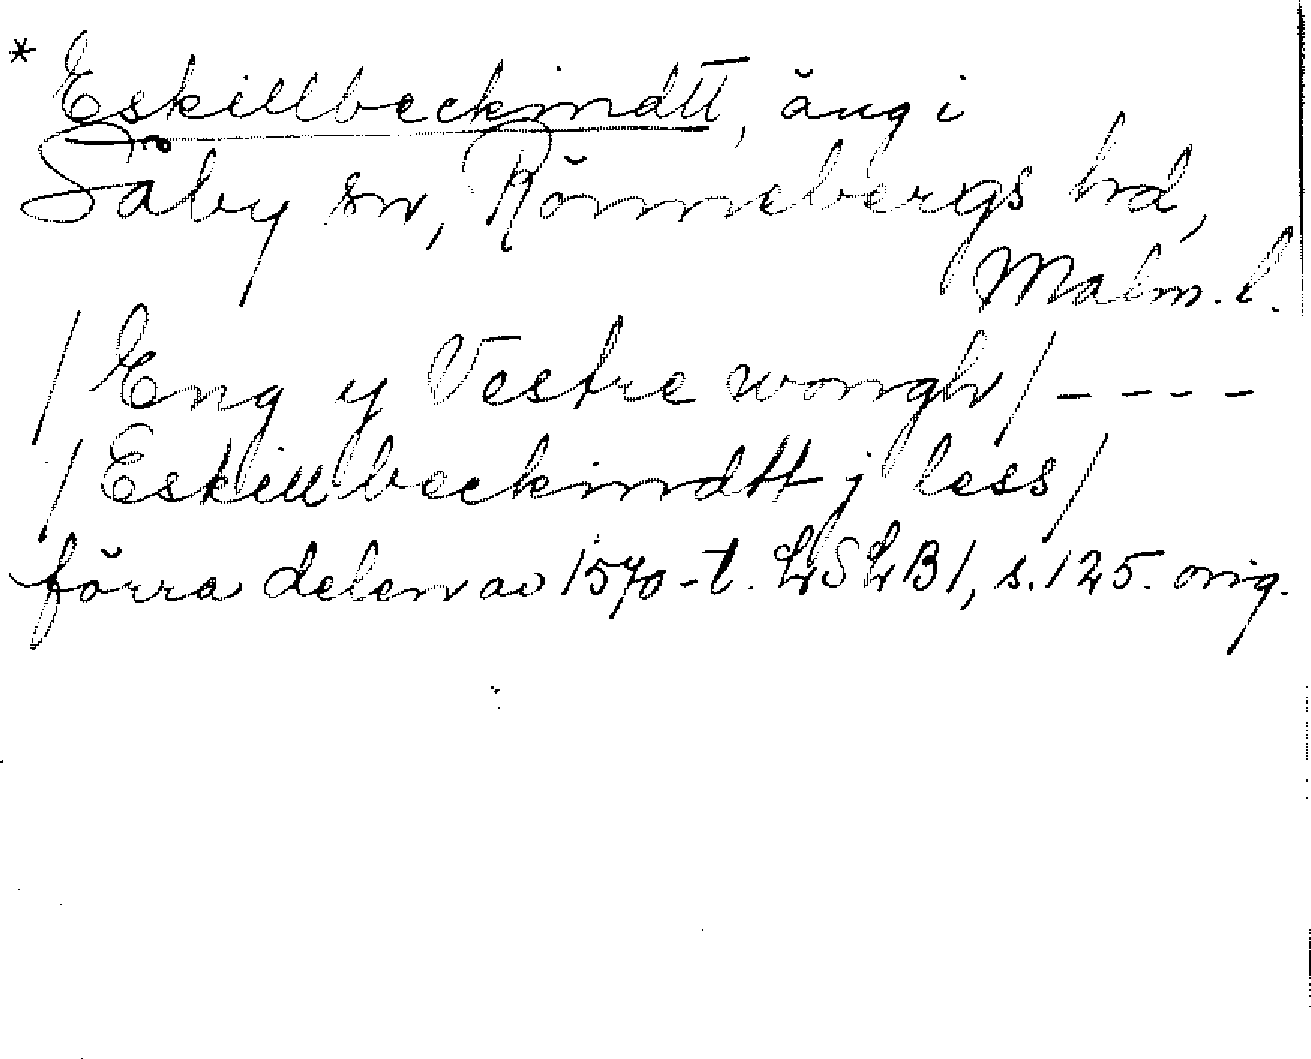 * Eskillbeckindtt, äng i
Säby sn, Rönnebergs hd,
Malm. l.
/ Eng y Vestre wongh / - - - -
/ Eskillbeckindtt j less /
förra delen av 1570-t. LSLB 1, s. 125. orig.